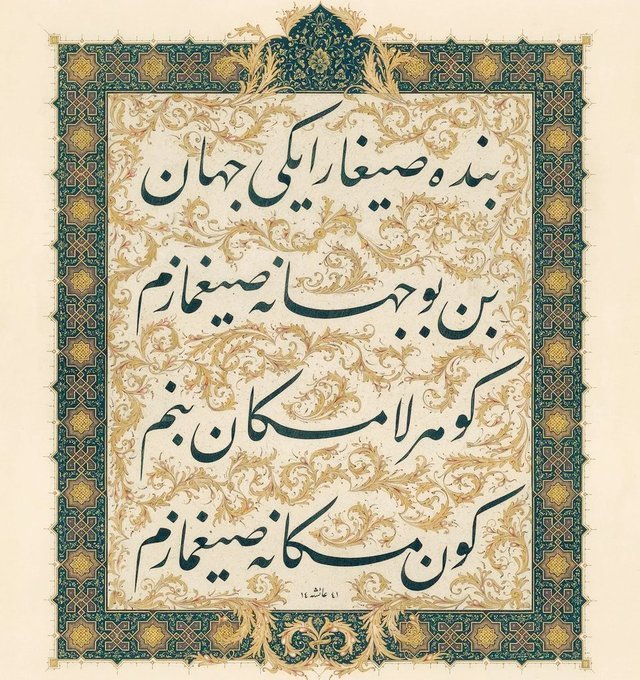 بنده صیغار ایکی جهان
بن بو جهانه صیغمازم
کوهر لا مکان بنم
کون مکانه صیغمازم